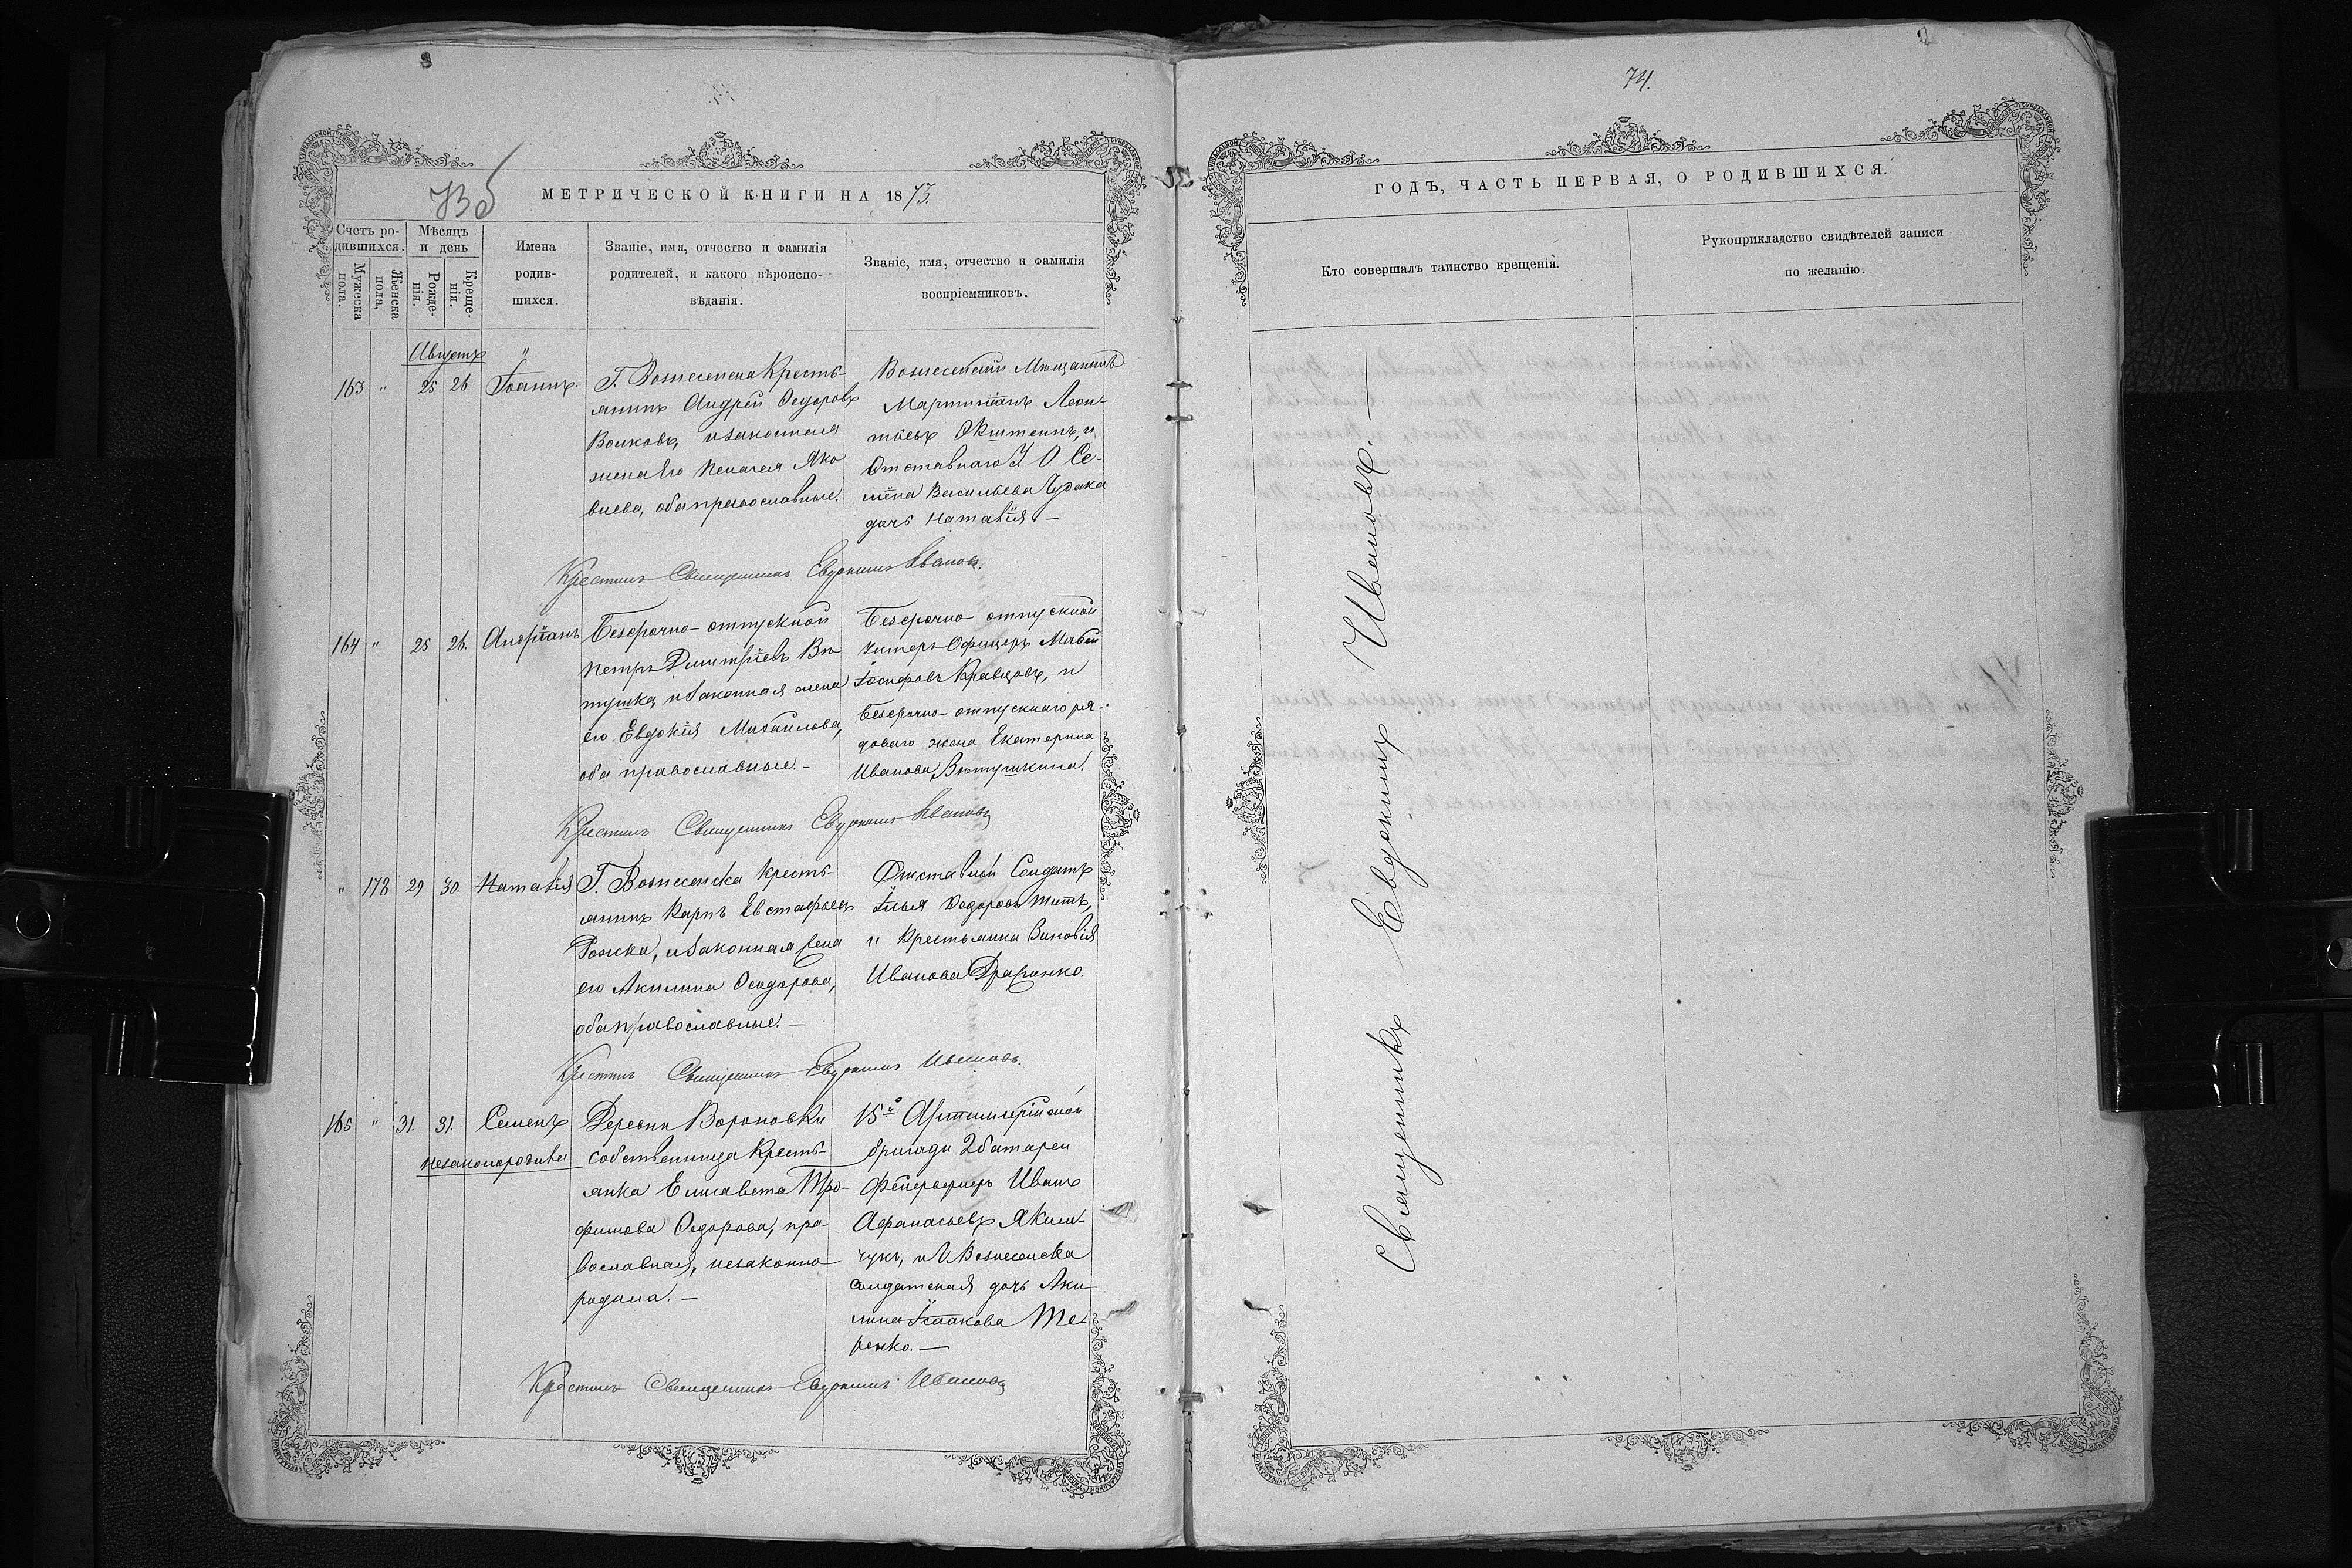 74.
МЕТРИЧЕСКОЙ КНИГИ НА 1873.
ГОДЪ, ЧАСТЬ ПЕРВАЯ, О РОДИВШИХСЯ.
Счетъ ро-
дившихся.
Мужеска
пола.
Женска
пола,
Мѣсяцъ
и день
Рожде-
нія.
Креще-
нія.
Имена
родив-
шихся.
Званіе, имя, отчество и фамилія
родителей, и какого вѣроиспо-
вѣданія.
Званіе, имя, отчество и фамилія
воспріемниковъ.
Кто совершалъ таинство крещенія.
Рукоприкладство свидѣтелей записи
по желанію.
Августъ "
163 " 25 26 Іоаннъ.
Г. Вознесенска Кресть-
янинъ Андрей Ѳедоровъ
Волковъ, и законная
жена его Пелагея Яко
влева, оба православные.
Вознесенскій Мѣщанинъ
Мартиніанъ Леон-
тіевъ и
Отставнаго У. О. Се-
мёна Васильева Чудака
дочь Наталія –
Крестилъ Священникъ Евдокимъ Ивановъ.
164 " 25 26. Андріанъ
Безсрочно отпускной
Петръ Димитріевъ Вѣ-
тушка, и законная жена
его Евдокія Михайлова,
оба православные. –
Безсрочно отпускной
Унтеръ Офицеръ
Іосифовъ Кравцовъ, и
Безсрочно-отпускнаго ря-
доваго жена Екатерина
Иванова Вѣтушкина.
Крестилъ Священникъ Евдокимъ Ивановъ
" 178 29 30. Наталія
Г. Вознесенска Кресть-
янинъ Карпъ Евстафьевъ
Рожка, и законная жена
его Акилина Ѳеодорова,
оба православные. –
Отставной Солдатъ
Илья Ѳедоровъ Титъ,
и Крестьянка Зиновія
Иванова
Крестилъ Священникъ Евдокимъ Ивановъ.
165 " 31. 31. Семенъ
незаконорожд
Деревни Вороновки
собственница Кресть-
янка Елисавета Тро-
фимова Ѳедорова, пра-
вославная, незаконно
родила. –
15й Артиллерійской
бригады 2 батареи
Фейерверкеръ Иванъ
Афанасьевъ Яким-
чукъ, и Г. Вознесенска
солдатская дочь Аки-
лина Исаакова Те-
ренко. –
Крестилъ Священникъ Евдокимъ Ивановъ
Священникъ Евдокимъ Ивановъ. –